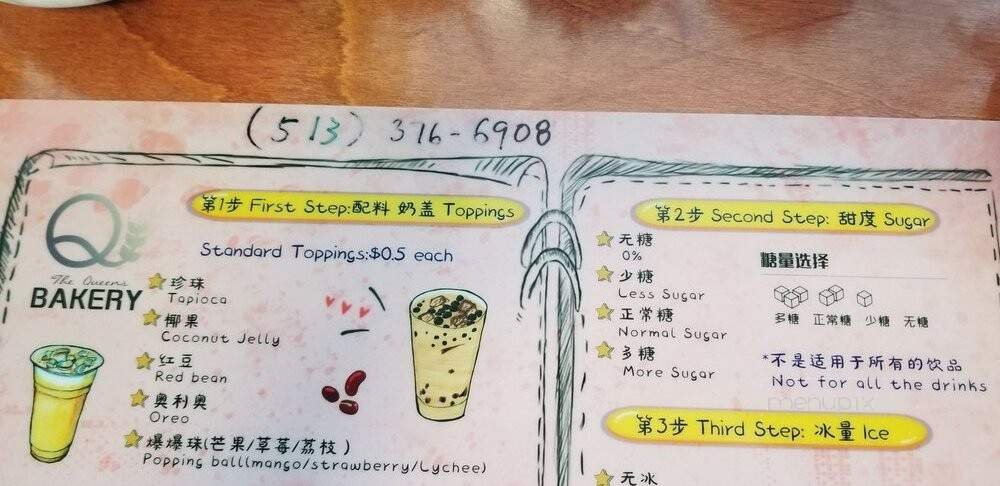 (513) 376-6908
Q
The Queens
BAKERY
第1步 First Step:配料 奶盖 Toppings
Standard Toppings:$0.5 each
珍珠
Tapioca
椰果
Coconut Jelly
红豆
Red bean
奥利奥
Oreo
爆爆珠(芒果/草莓/荔枝)
Popping ball(mango/strawberry/Lychee)
第2步 Second Step: 甜度 Sugar
无糖
0%
少糖
Less Sugar
正常糖
Normal Sugar
多糖
More Sugar
糖量选择
多糖 正常糖 少糖 无糖
*不是适用于所有的饮品
Not for all the drinks
menupix
第3步 Third Step: 冰量 Ice
无冰